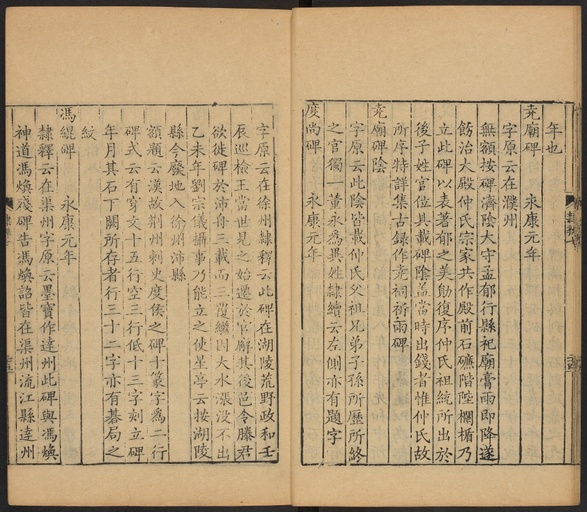 年也
堯廟碑 永康元年
字原云在濮州
無額按碑濟陰大守孟郁行縣祀廟膏雨即降遂
飭治大殿仲氏宗家共作殿前石磏階陛欄楯乃
立此碑以表著郁之美勛復序仲氏祖統所出於
後子姓官位具載碑陰盖當時出錢者惟仲氏故
所序特詳集古録作堯祠祈雨碑
堯廟碑陰
字原云此陰皆載仲氏父祖兄弟子孫所歷所終
之官獨一董永為異姓隸續云左側亦有題字
度尚碑 永康元年
字原云在徐州隸釋云此碑在湖陵荒野政和壬
辰巡檢王當世見之始遷於官廨其後邑令滕君
欲徙碑於沛舟三載而三覆繼因大水漲沒不出
乙未年劉宗儀攝事乃能立之使星亭云按湖陵
縣今廢地入徐州沛縣
額題云漢故荆州刺史度侯之碑十篆字為二行
碑式云有穿文十五行空三行低十三字刻立碑
年月其石下闕所存者行三十二字亦有碁局之
紋
馮緄碑 永康元年
隸釋云在渠州字原云墨寶作達州此碑與馮煥
神道馮煥殘碑告馮煥詔皆在渠州流江縣達州